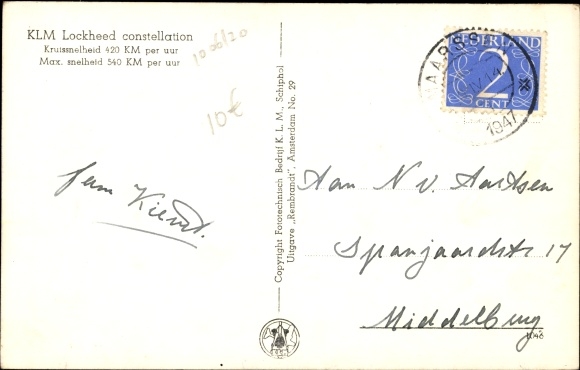 KLM Lockheed constellation
Kruissnelheid 420 KM per uur
Max. snelheid 540 KM per uur
10€
fam Kiewit.
Copyright Fototechnisch Bedrijf K. L. M., Schiphol
Uitgave „Rembrandt", Amsterdam No. 29
NEDERLAND
2
CENT
1947
Aan N V. Aartsen
Spanjaardstr 17
Middelburg
1046